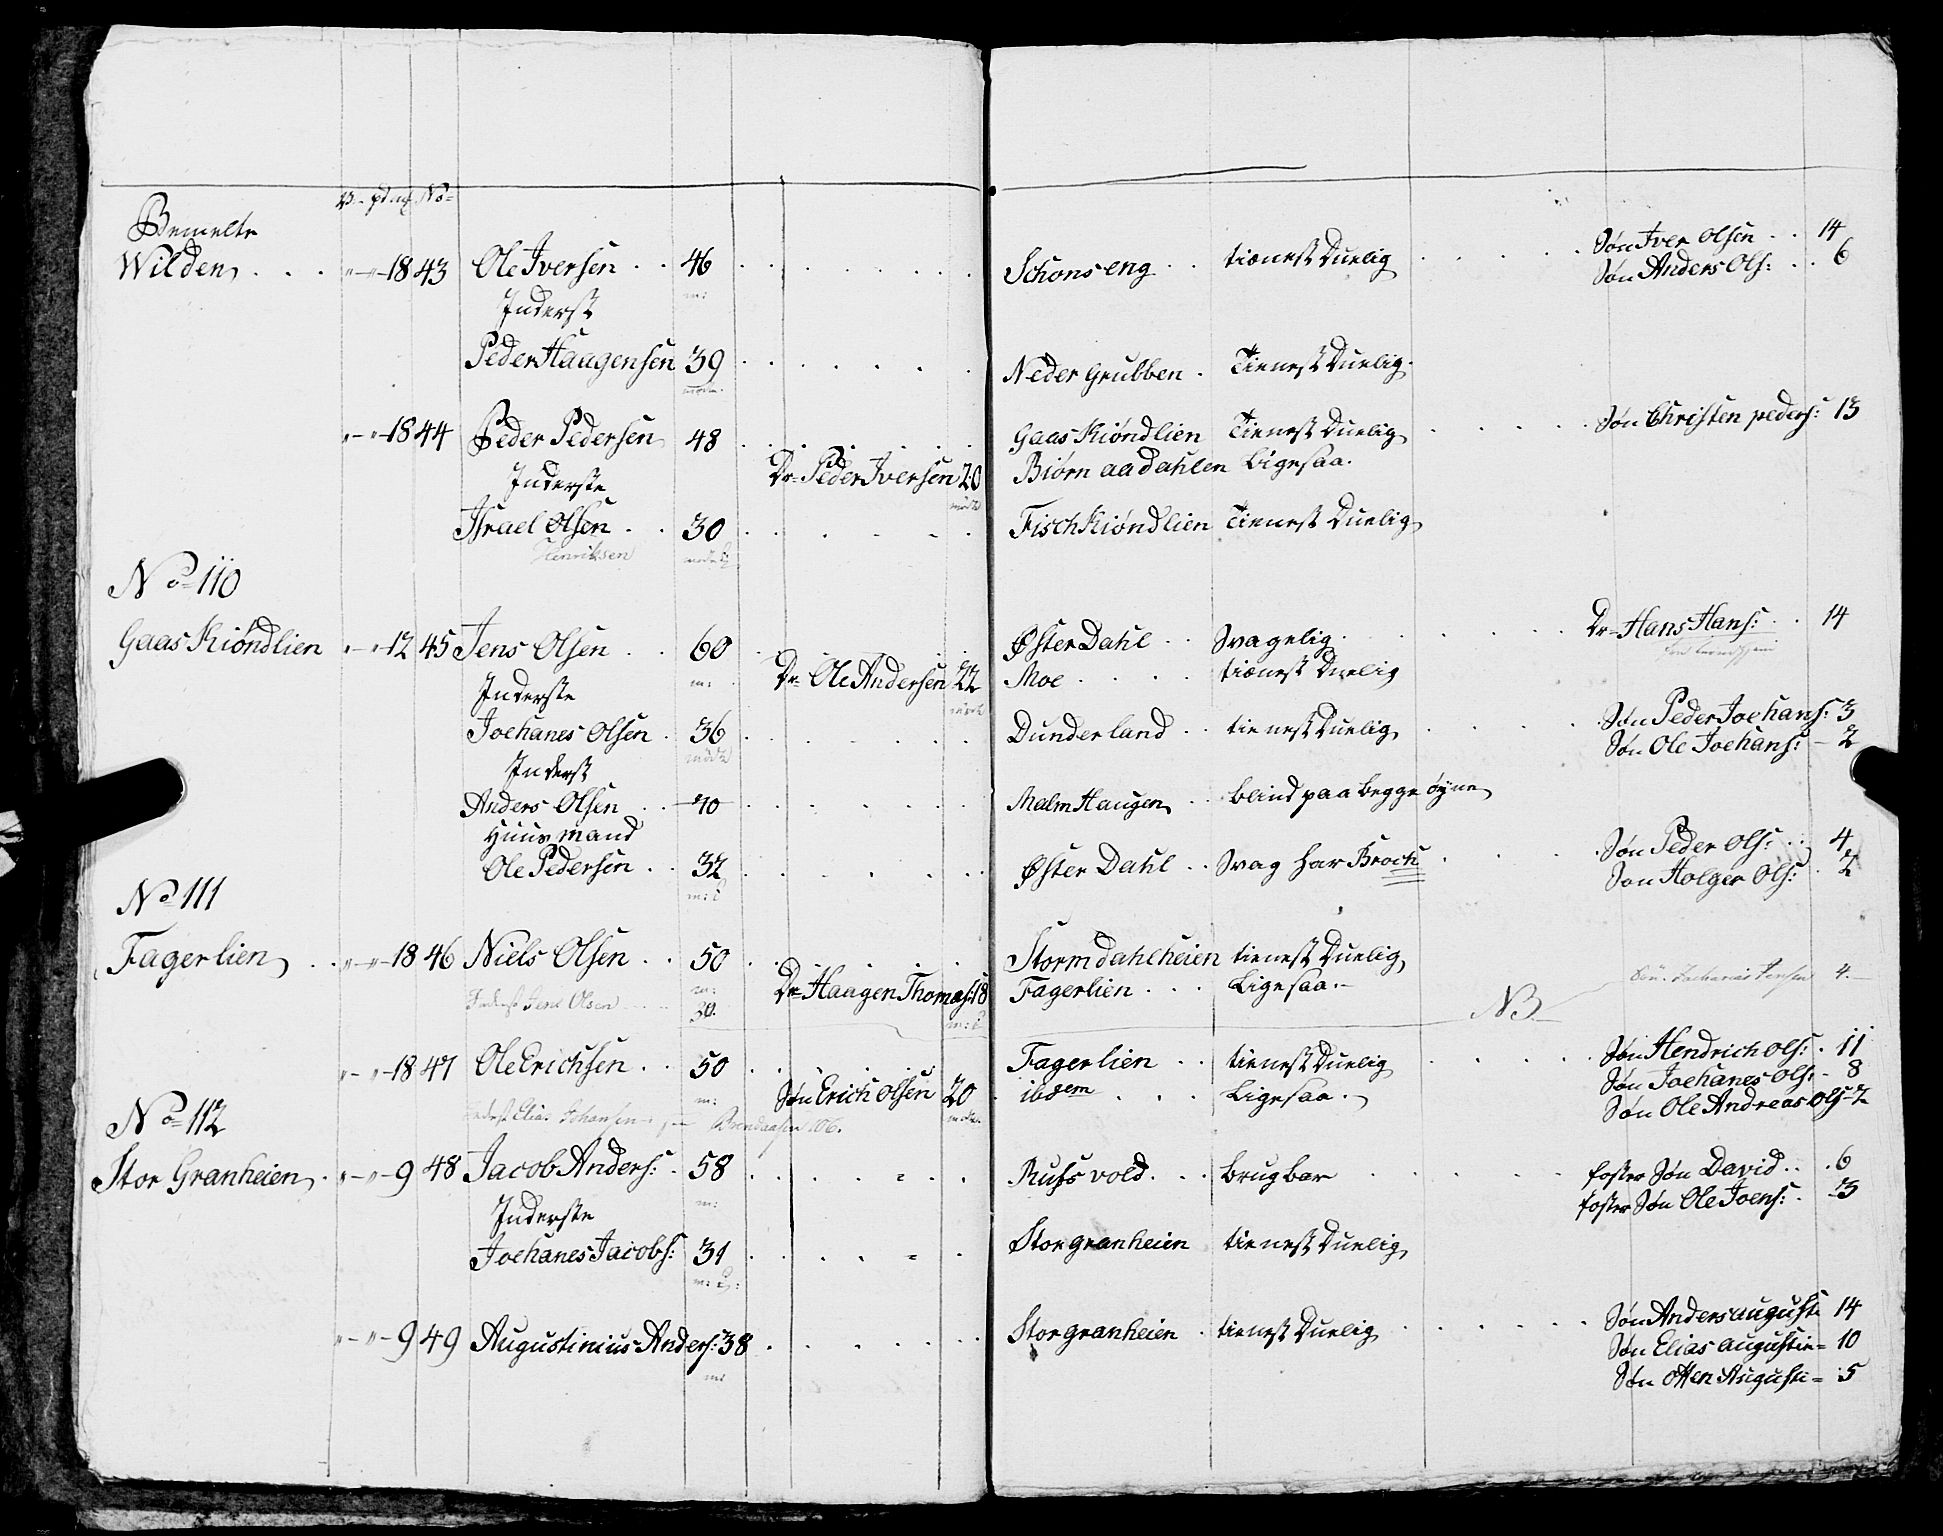 V. pd. ℳ No=
Bemelte
Wilden . . . "-"-18 43 Ole Iversen . . 46 Schons eng . . tienest Duelig Søn Iver Olsen . . 14
m: Søn Anders Ols: . . 6
Inderst
Peder Haagensen 39 Neder Grubben . Tienest Duelig.
"-"-18 44 Peder Pedersen 48 Gaas Kiøndlien Tienest Duelig Søn Christen peders: 13
Dr= Peder Iversen 20 Biørn aadahlen Ligesaa.
Inderste
Israel Olsen . . 30 Fisch Kiøndlien Tienest Duelig
Henriksen
No= 110
Gaas Kiøndlien "-"12 45 Jens Olsen . . 60 Øster Dahl . . Svagelig . Dr= Hans Hans: . . 14
m: Dr= Ole Andersen 22 Moe . . . . tienest Duelig
Inderste
Joehanes Olsen . 36 Dunderland . . tienest Duelig Søn Peder Joehans: 3
Søn Ole Joehans: - 2
Inderst
Anders Olsen . . 40 Malm Haugen . . blind paa begge øyne
Huusmand
Ole Pedersen . . 32 Øster Dahl . . Svag har Brock Søn Peder Ols: . . 4
Søn Holger Ols: . 2
No= 111
Fagerlien . . "-"-18 46 Niels Olsen . . 50 Stormdahlheien tienest Duelig
m: Dr= Haagen Thomas: 18 Fagerlien . . . Ligesaa.-
Inderst Jens Olsen 30. Søn. Zacharias Jensen 4.
NB
"-"-18 47 Ole Erichsen . . 50 Fagerlien . . tienest Duelig Søn Hendrich Ols: . 11
m: Søn Erich Olsen 20 . ibdem . . . Ligesaa . Søn Joehanes Ols: - 8
Søn Ole Andreas Ols - 2
Inderst Elias Johansen Brendaasen 106.
No= 112
Stor Granheien . "-"-9 48 Jacob Anders: . 58 Rufsvold . . . brugbar foster Søn David . . . 6
m: foster Søn Ole Joens: . 3
Inderste
Joehanes Jacobs: 31 Storgranheien tienest Duelig
"-"-9 49 Augustinius Anders: 38 Storgranheien . tienest Duelig Søn Anders augusti 14
Søn Elias augustin= 10
Søn Otten Augusti= 5